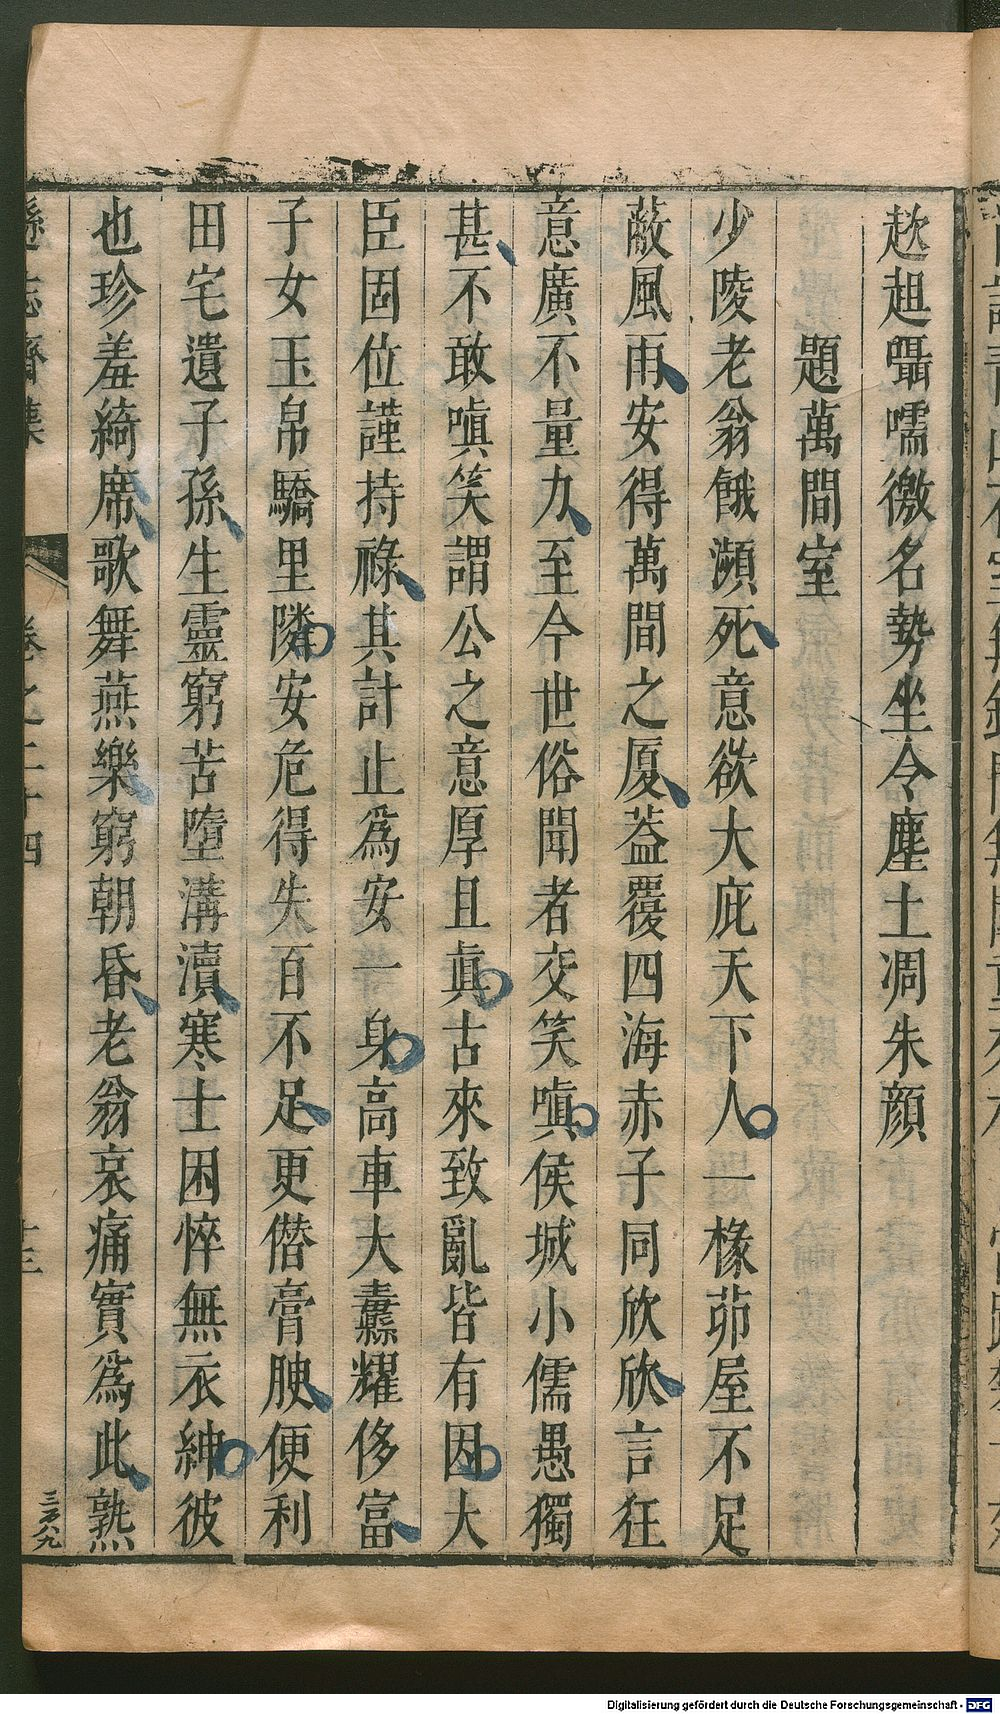 趑趄囁嚅徼名勢坐令塵土凋朱顏
題萬間室
少陵老翁餓瀕死意欲大庇天下人一椽茆屋不足
蔽風雨安得萬間之厦葢覆四海赤子同欣欣言狂
意廣不量力至今世俗聞者交笑嗔侯城小儒愚獨
甚不敢嗔笑謂公之意厚且眞古來致亂皆有因大
臣固位謹持祿其計止爲安一身高車大纛耀侈富
子女玉帛驕里隣安危得失百不足更僭膏腴便利
田宅遺子孫生靈窮苦墮溝瀆寒士困悴無衣紳彼
也珍羞綺席歌舞燕樂窮朝昏老翁哀痛實爲此孰
遜志齋集
卷之二十四
十三
Digitalisierung gefördert durch die Deutsche Forschungsgemeinschaft - DFG